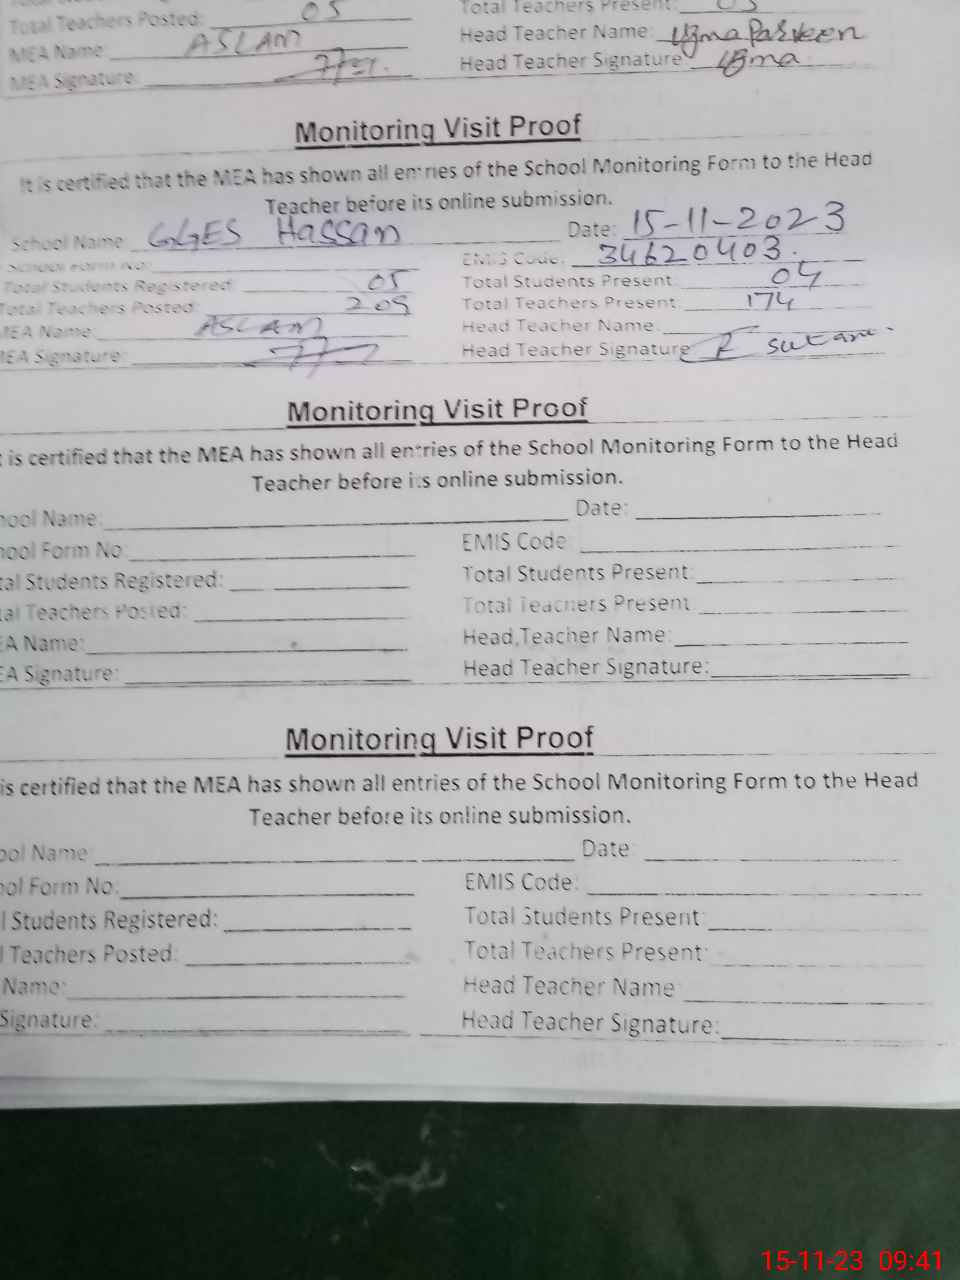 Total Teachers Posted: 05 Total Teachers Present: 05
MEA Name: ASLAM Head Teacher Name: Uzma Parveen
MEA Signature: Head Teacher Signature Uzma
Monitoring Visit Proof
It is certified that the MEA has shown all entries of the School Monitoring Form to the Head
Teacher before its online submission.
School Name GGES Hassan Date: 15-11-2023
School Form No: EMIS Code: 34620403.
Total Students Registered: 05 Total Students Present: 04
Total Teachers Posted: 209 Total Teachers Present: 174
MEA Name: ASLAM Head Teacher Name:
MEA Signature: Head Teacher Signature
Monitoring Visit Proof
t is certified that the MEA has shown all entries of the School Monitoring Form to the Head
Teacher before its online submission.
hool Name: Date:
hool Form No: EMIS Code
tal Students Registered: Total Students Present:
tal Teachers Posted: Total Teachers Present
EA Name: Head Teacher Name:
EA Signature: Head Teacher Signature:
Monitoring Visit Proof
is certified that the MEA has shown all entries of the School Monitoring Form to the Head
Teacher before its online submission.
ool Name Date
ool Form No: EMIS Code:
l Students Registered: Total Students Present:
l Teachers Posted: Total Teachers Present:
Name: Head Teacher Name
Signature: Head Teacher Signature:
15-11-23 09:41